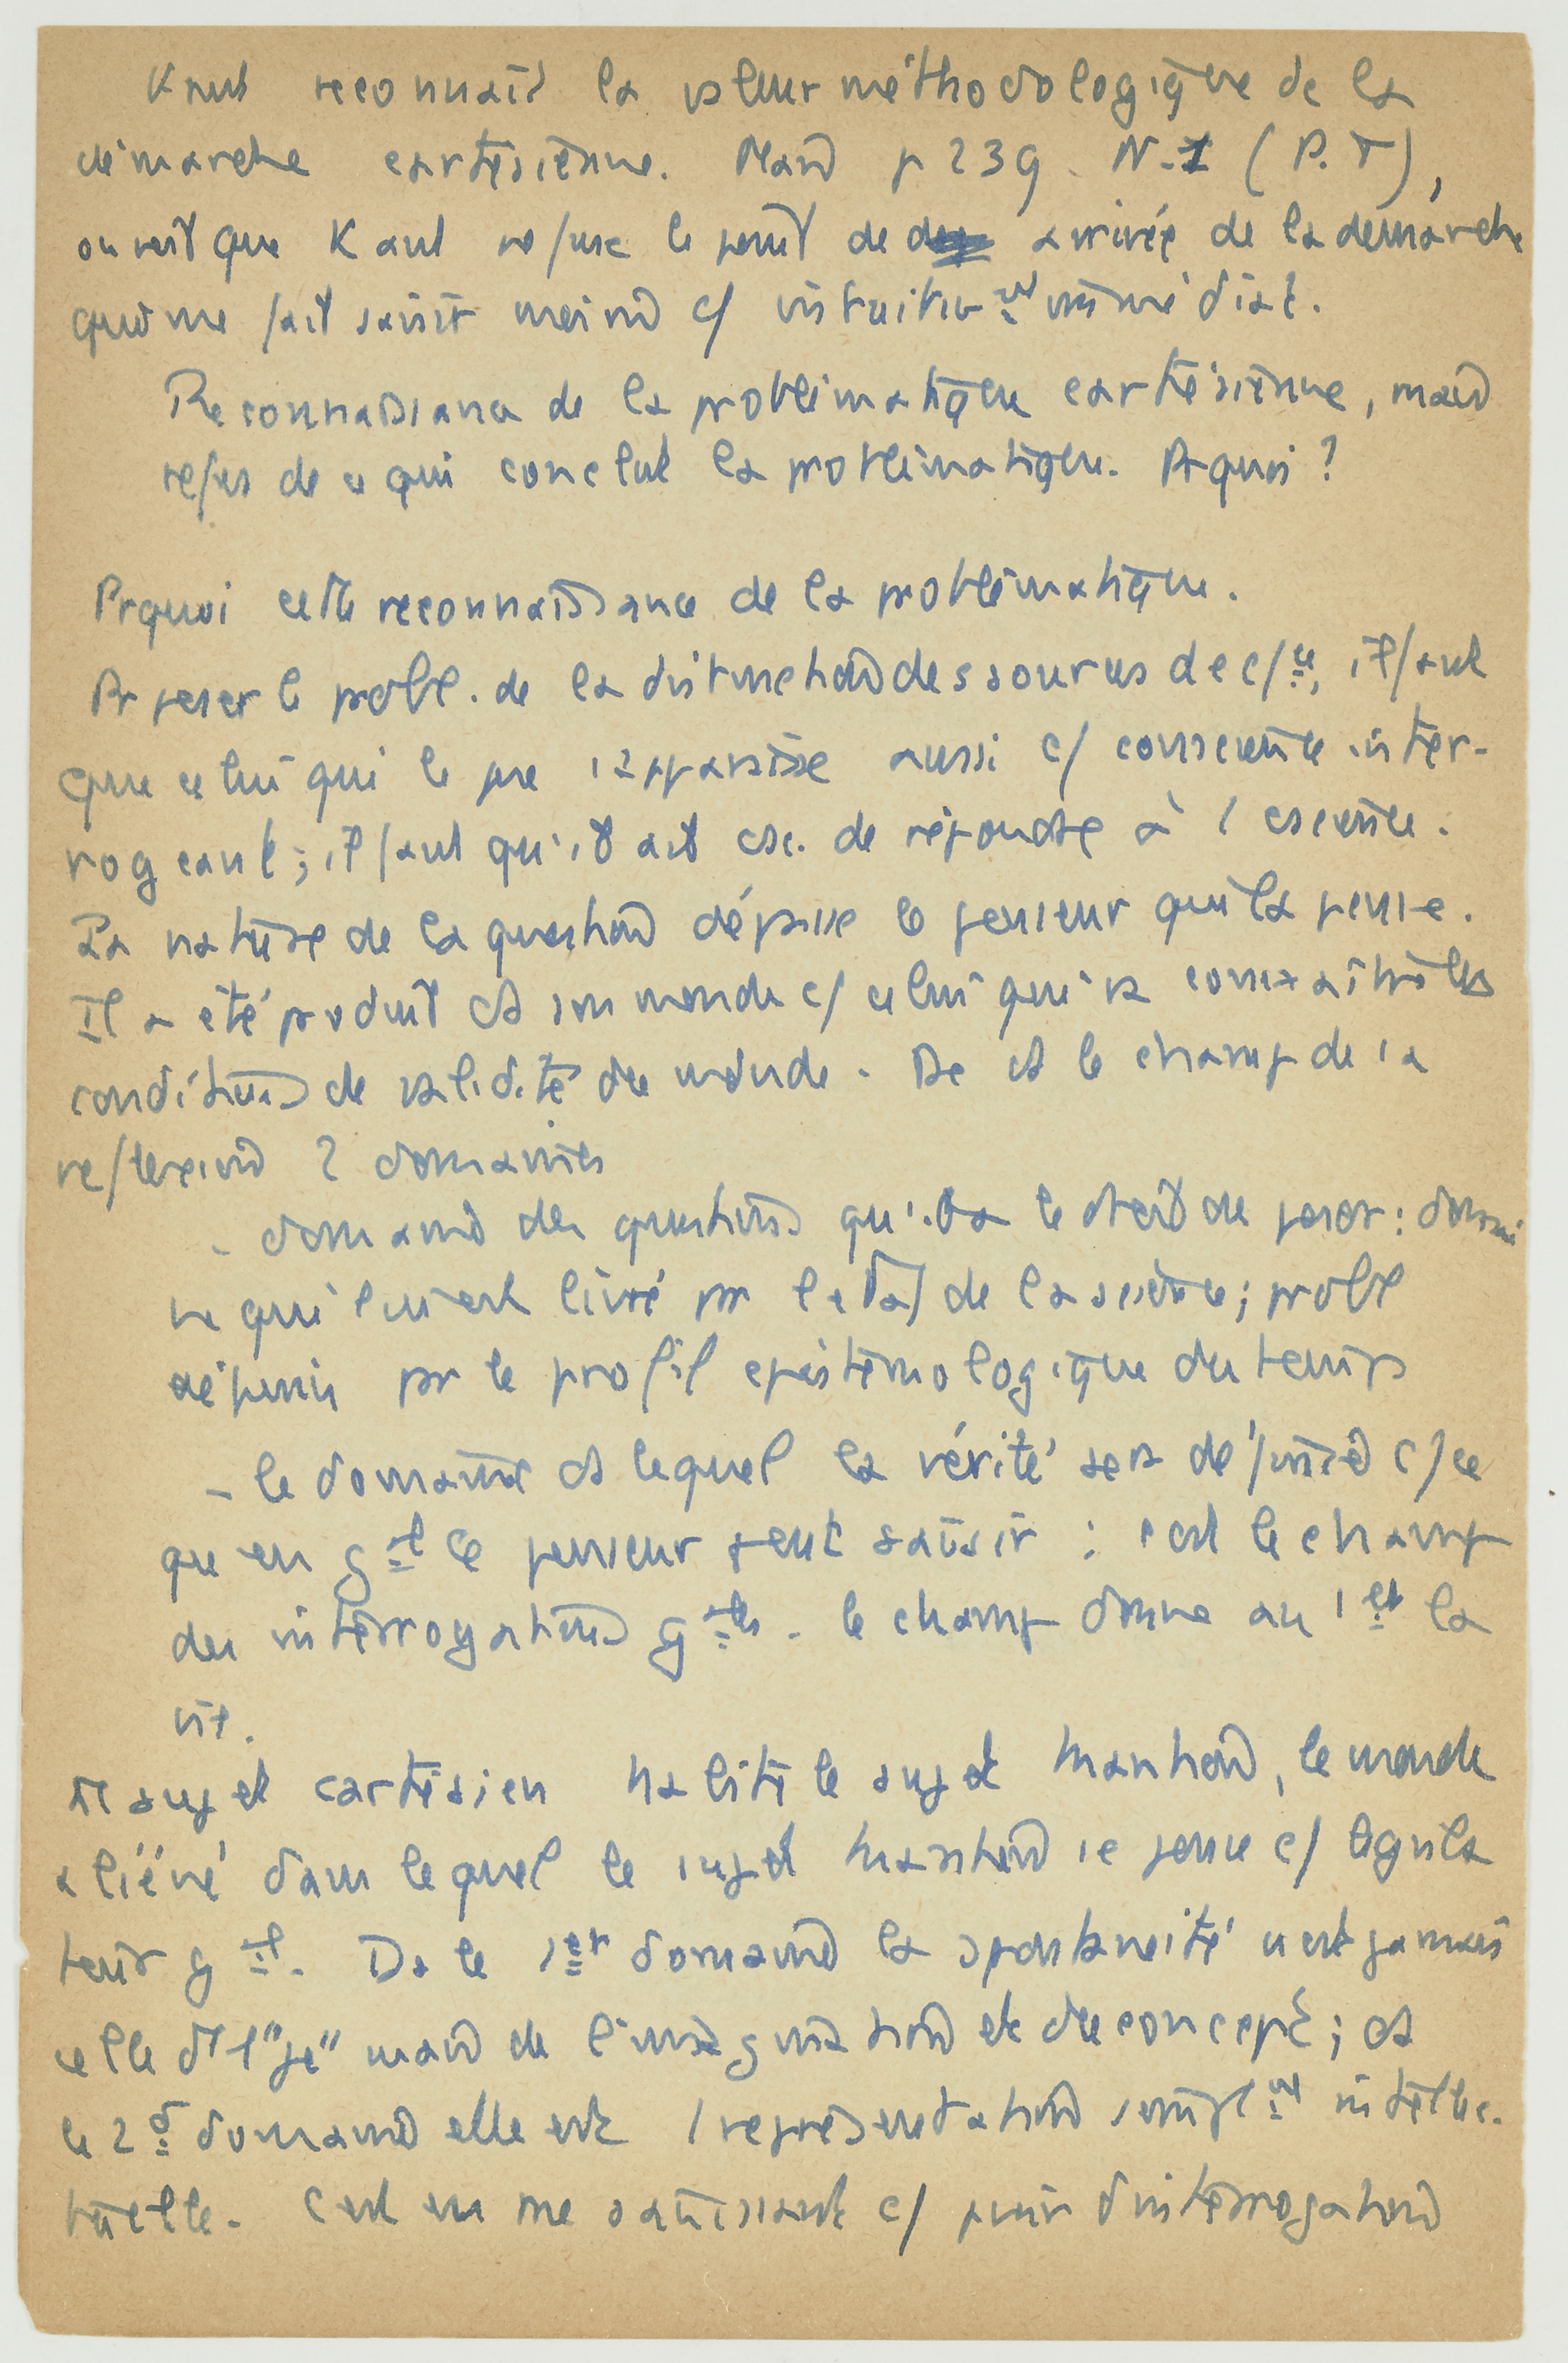 Kant reconnait la valeur méthodologique de la
démarche cartésienne. Mais p 239 N-1 (P. T),
on voit que Kant refuse le point de arrivée de la démarche
qui me fait saisir c/ intuitivt immédiat.
Reconnaissance de la problématique cartésienne, mais
refus de ce qui conclut la problématique. Prquoi ?
Prquoi cette reconnaissance de la problématique.
Pr poser le probl. de la distinction des sources de c/ce, il faut
que celui qui le pose apparaisse aussi c/ conscience inter-
rogeant ; il faut qu'il ait de répondre à 1 science.
La nature de la question dépasse le penseur qui la pense.
Il a été produit ds son monde c/ celui qui va connaître les
conditions de validité du monde. De ds le champ de la
reflexion 2 domaines
- domaine des questions qu'il a le droit de poser : domai
ne qui lui est livré pr l'état de la science ; probl
défini pr le profil epistémologique du temps
- le domaine ds lequel la vérité sera définie c/ ce
que en gal ce penseur peut saisir : c'est le champ
des interrogations gales. le champ donne au 1er la
vie.
sujet cartésien habite le sujet kantien, le monde
aliéné dans lequel le sujet kantien se pense c/ législa
teur gal. Ds le 1er domaine la spontaneité n'est jamais
celle d'1 "je" mais de l'imagination et du concept ; ds
le 2d domaine elle est 1 représentation simplt intellec-
tuelle. C'est en me saisissant c/ d'interrogation